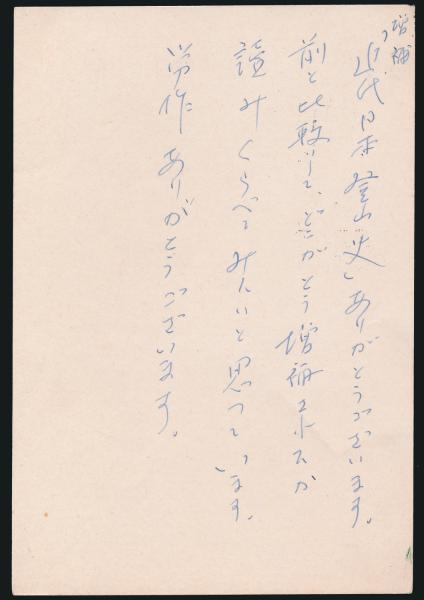 増補
「近代日本登山史」ありがとうございます。
前と比較して、どこがどう増補
読みくらべてみたいと思っています。
労作ありがとうございます。